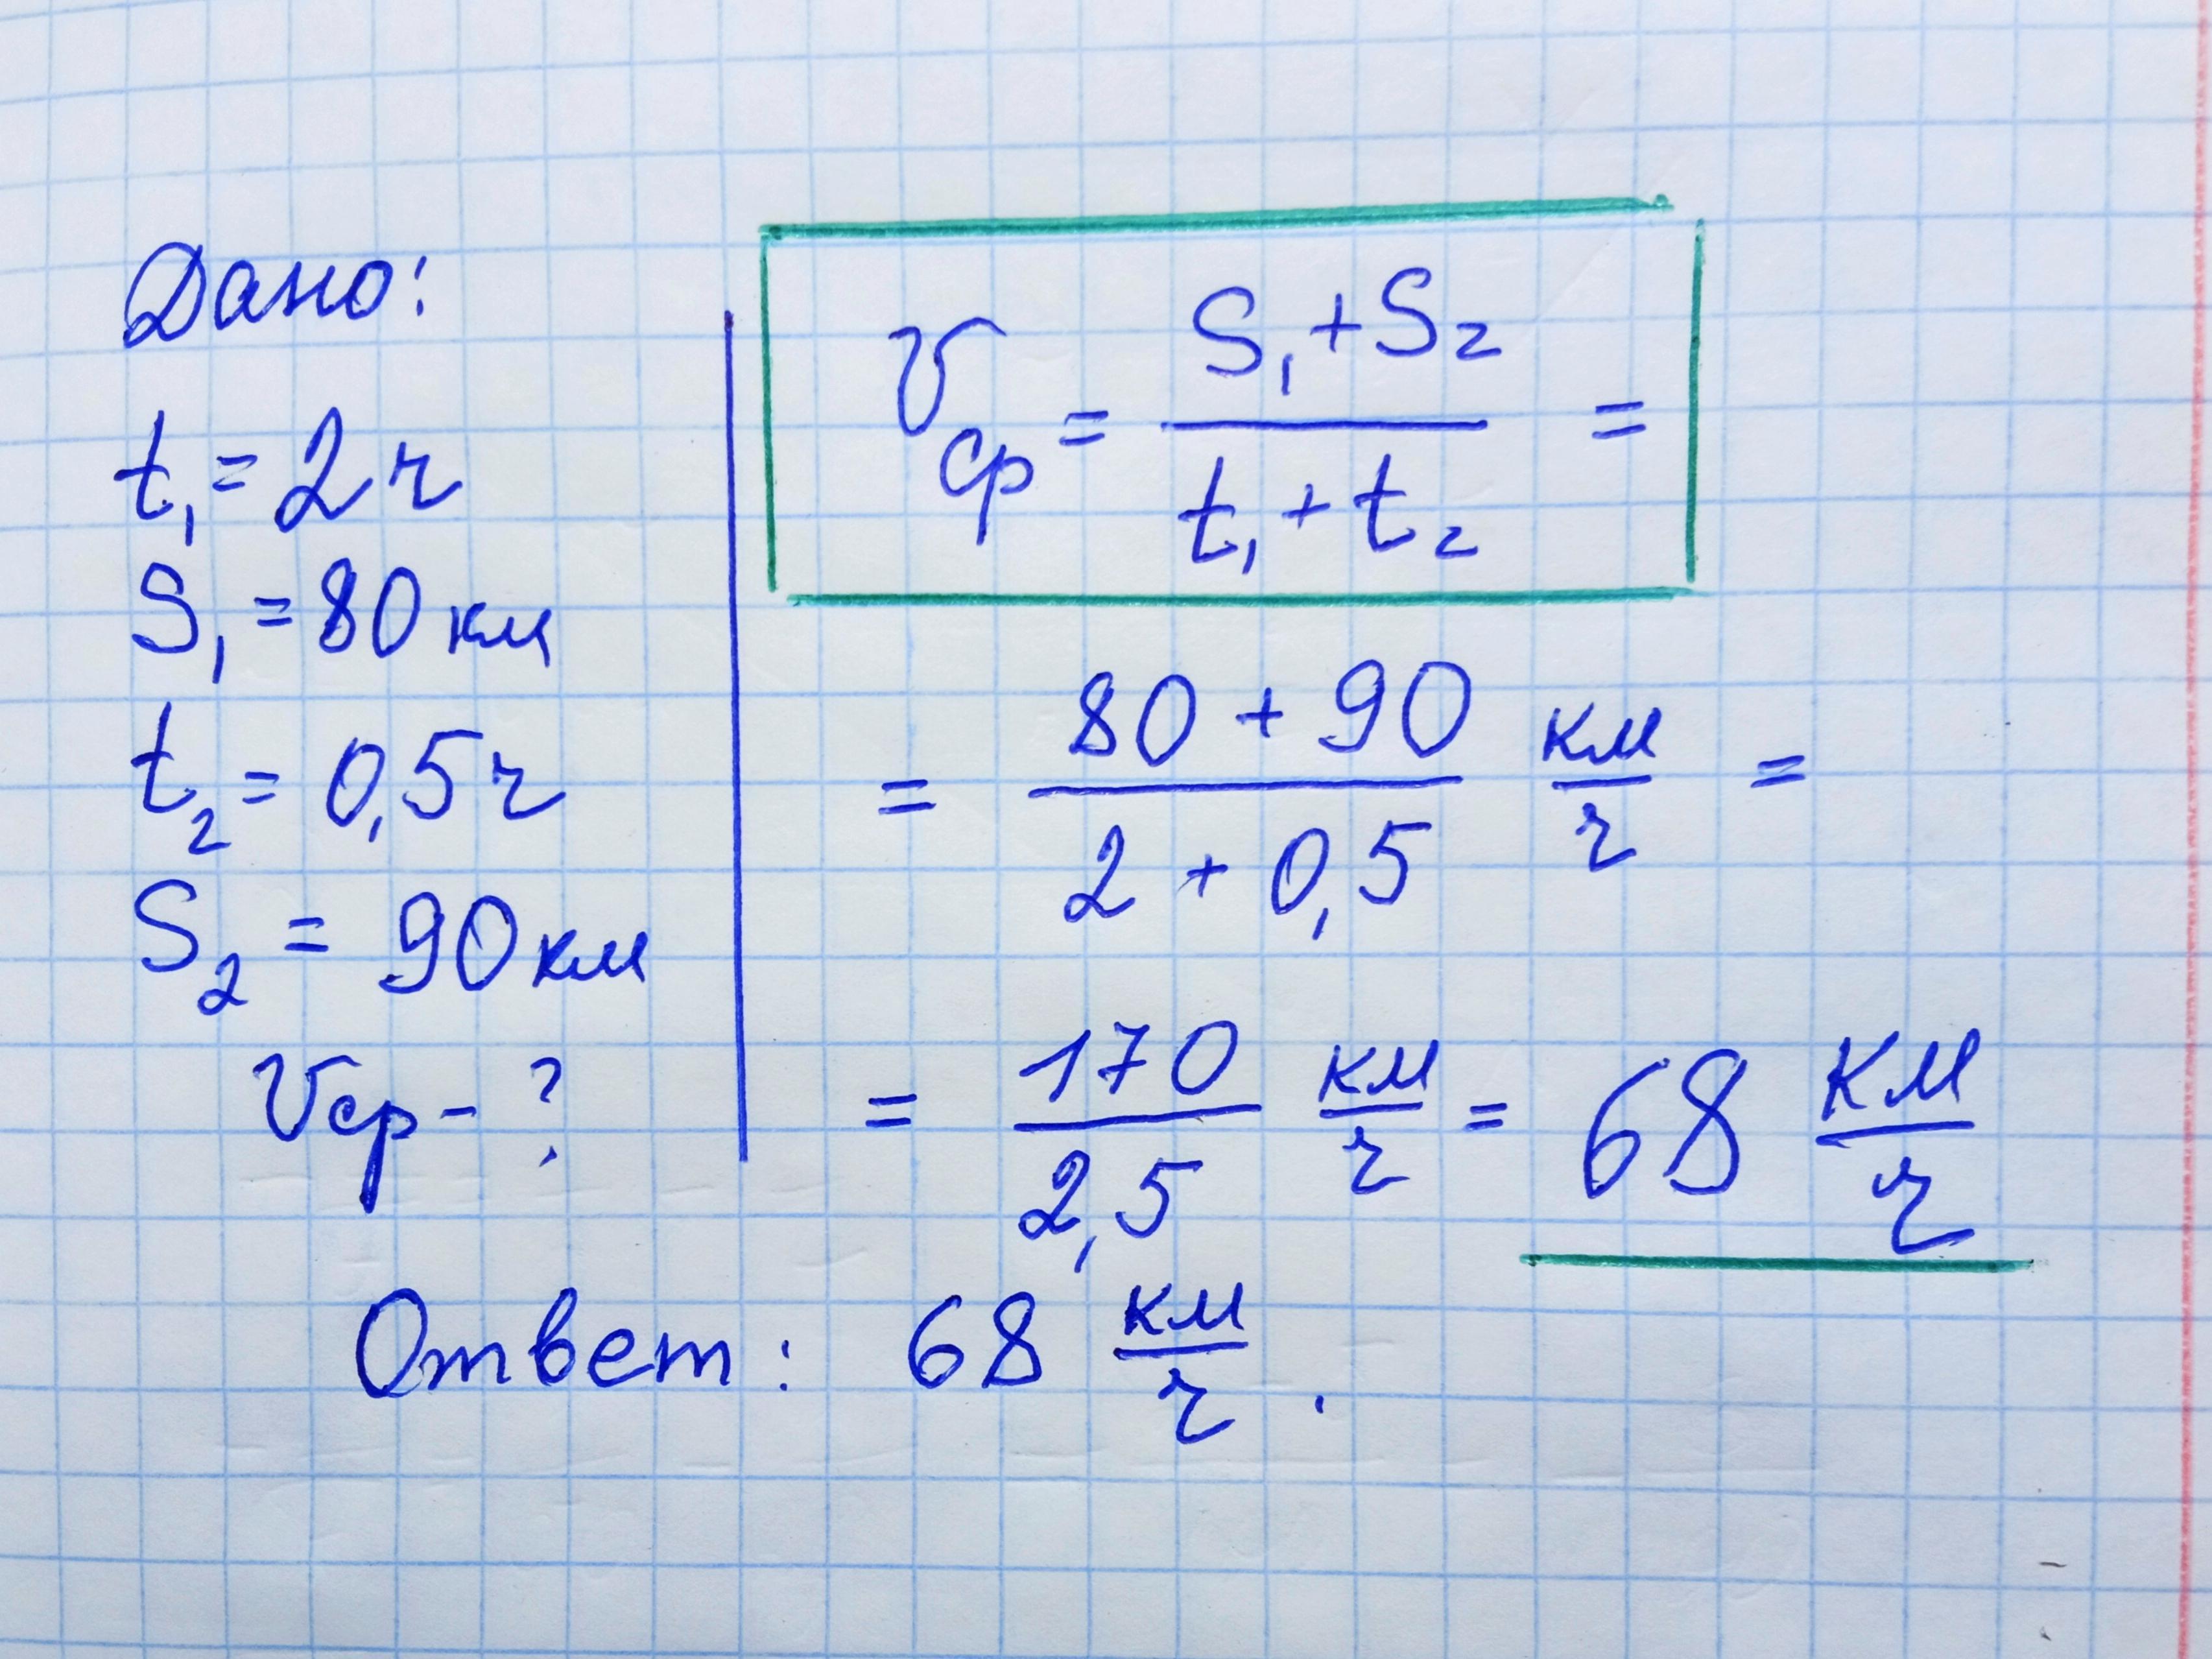 Дано:
t₁ = 2 ч
S₁ = 80 км
t₂ = 0,5 ч
S₂ = 90 км
Vср - ?
Vср = (S₁ + S₂) / (t₁ + t₂) =
= (80 + 90) / (2 + 0,5) км/ч =
= 170 / 2,5 км/ч = 68 км/ч
Ответ: 68 км/ч.